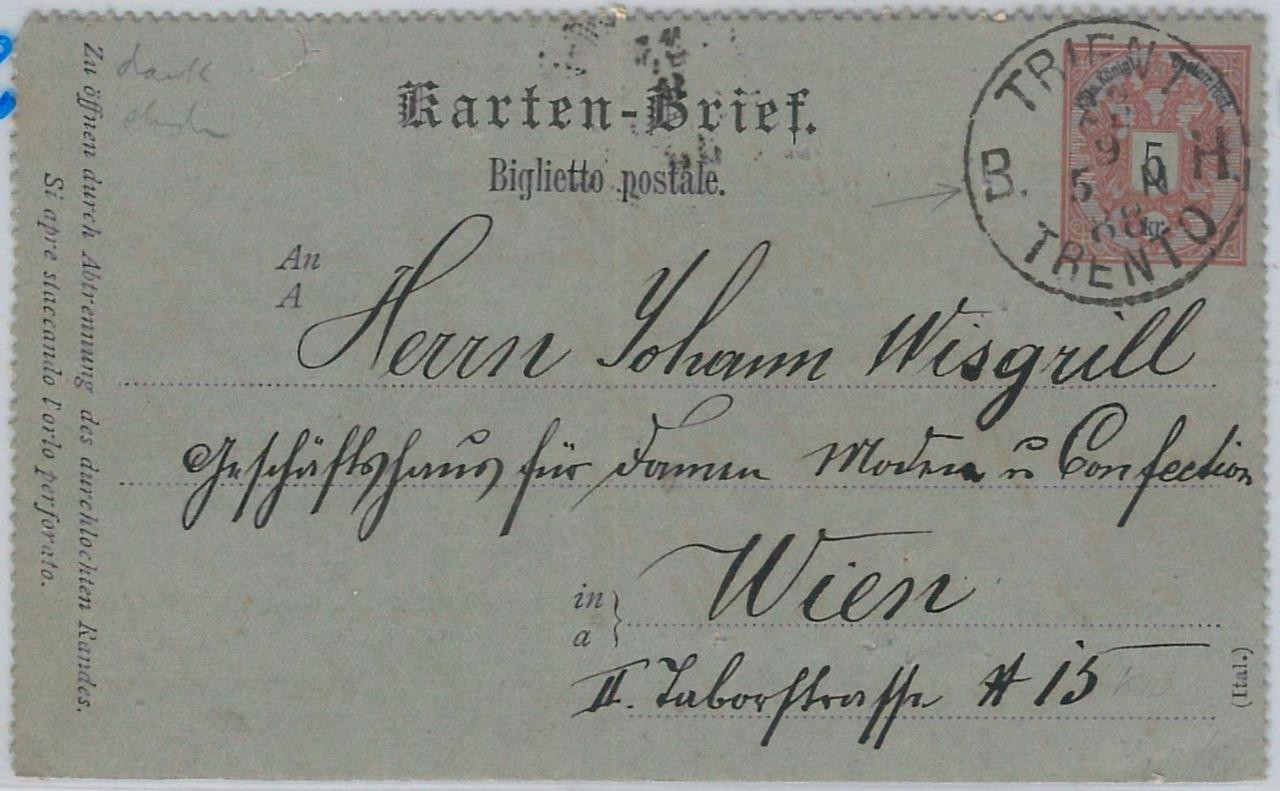 Karten-Brief.
Biglietto postale.
TRIENT
B. H.
9
5 N
88
TRENTO
5
kr.
An
A
Herrn Johann Wisgrill
Geschäftshaus für Damen Moden u Confection
in
a
Wien
II. Taborstrasse # 15
(Ital.)
Zu öffnen durch Abtrennung des durchlochten Randes.
Si apre staccando l'orlo perforato.
dark